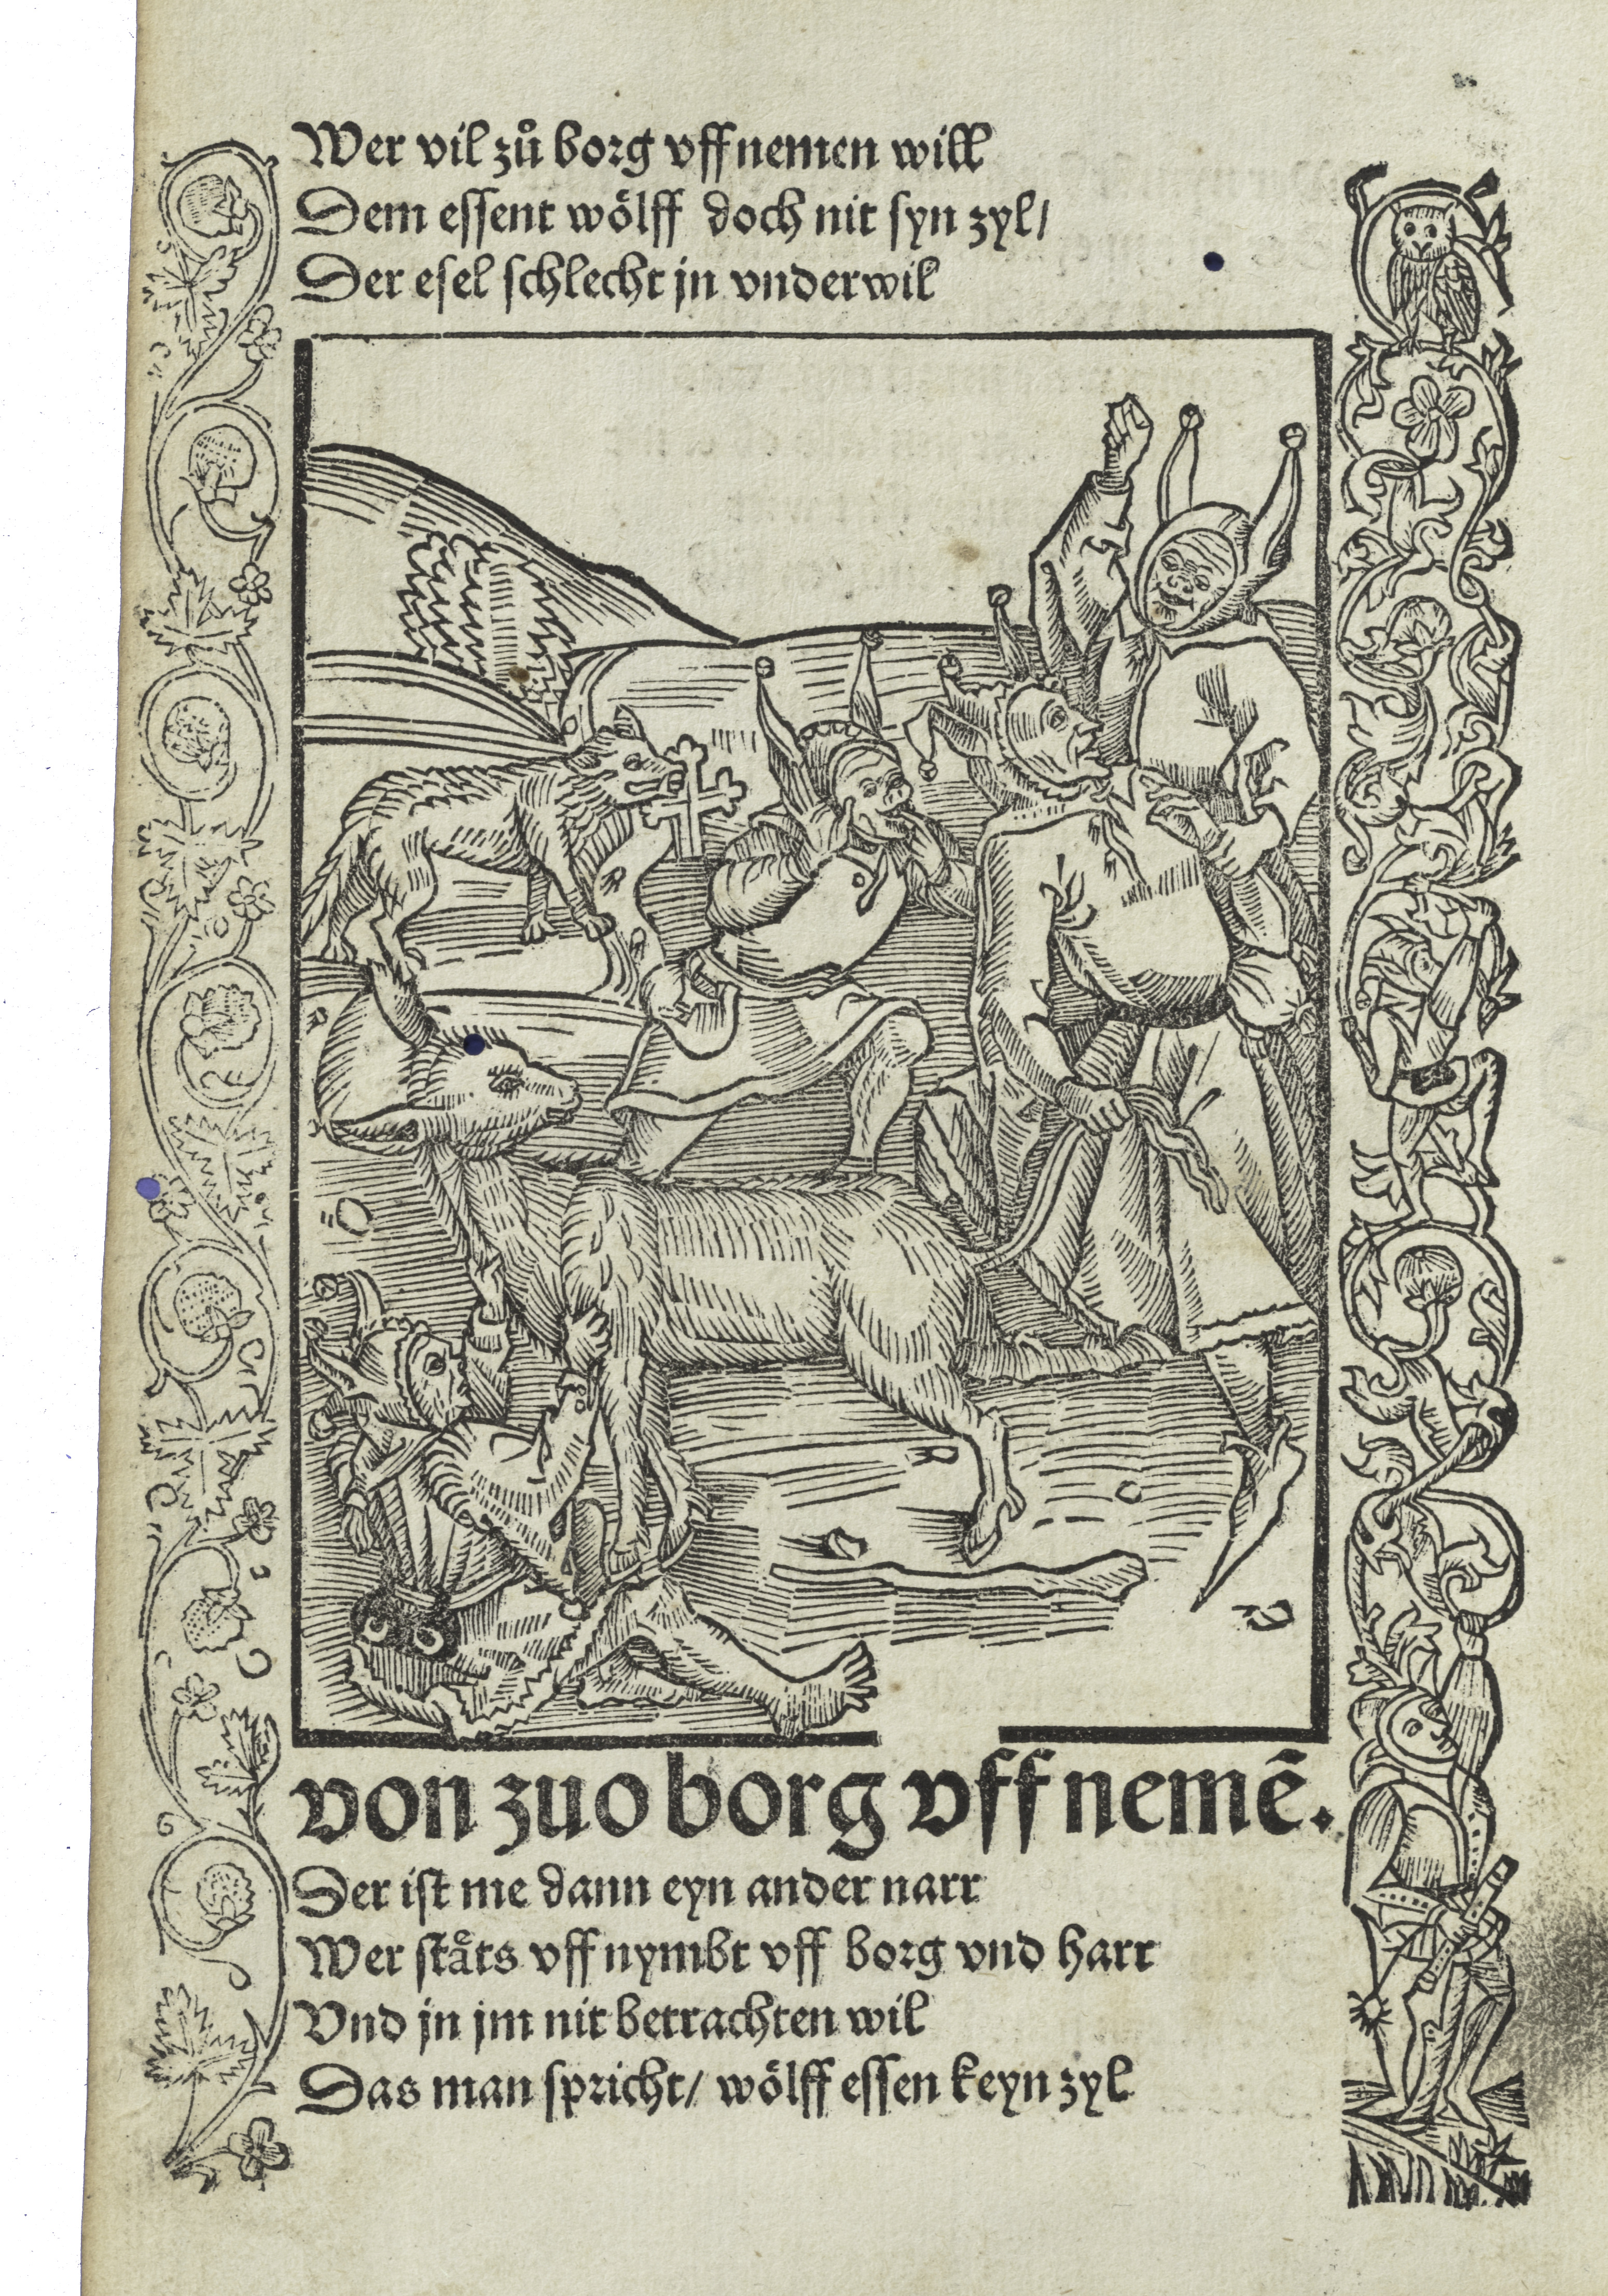 Wer vil zů borg vffnemen will
Dem essent wölff doch nit syn zyl/
Der esel schlecht jn vnderwil
von zuo borg vff nemē.
Der ist me dann eyn ander narr
Wer stäts vff nymbt vff borg vnd harr
Vnd jn jm nit betrachten wil
Das man spricht/ wölff essen keyn zyl